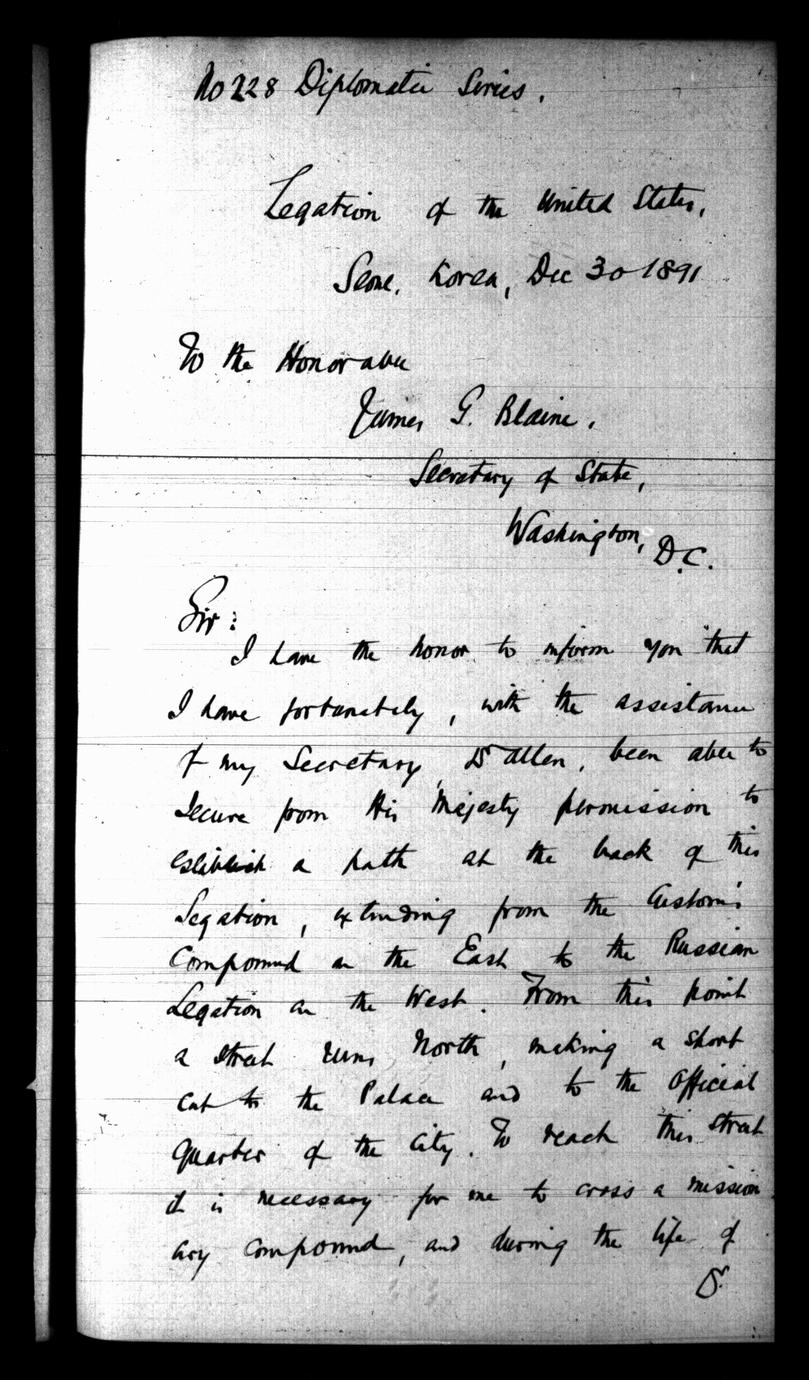 No 228 Diplomatic Series.
Legation of the United States,
Seoul, Korea, Dec 30 1891
To the Honorable
James G. Blaine,
Secretary of State,
Washington, D.C.
Sir:
I have the honor to inform you that
I have fortunately, with the assistance
of my Secretary, Dr Allen, been able to
secure from His Majesty permission to
establish a path at the back of this
Legation, extending from the Customs
Compound on the East to the Russian
Legation on the West. From this point
a street runs North, making a short
cut to the Palace and to the Official
quarter of the City. To reach this street
it is necessary for me to cross a mission
ary compound, and during the life of
Dr.